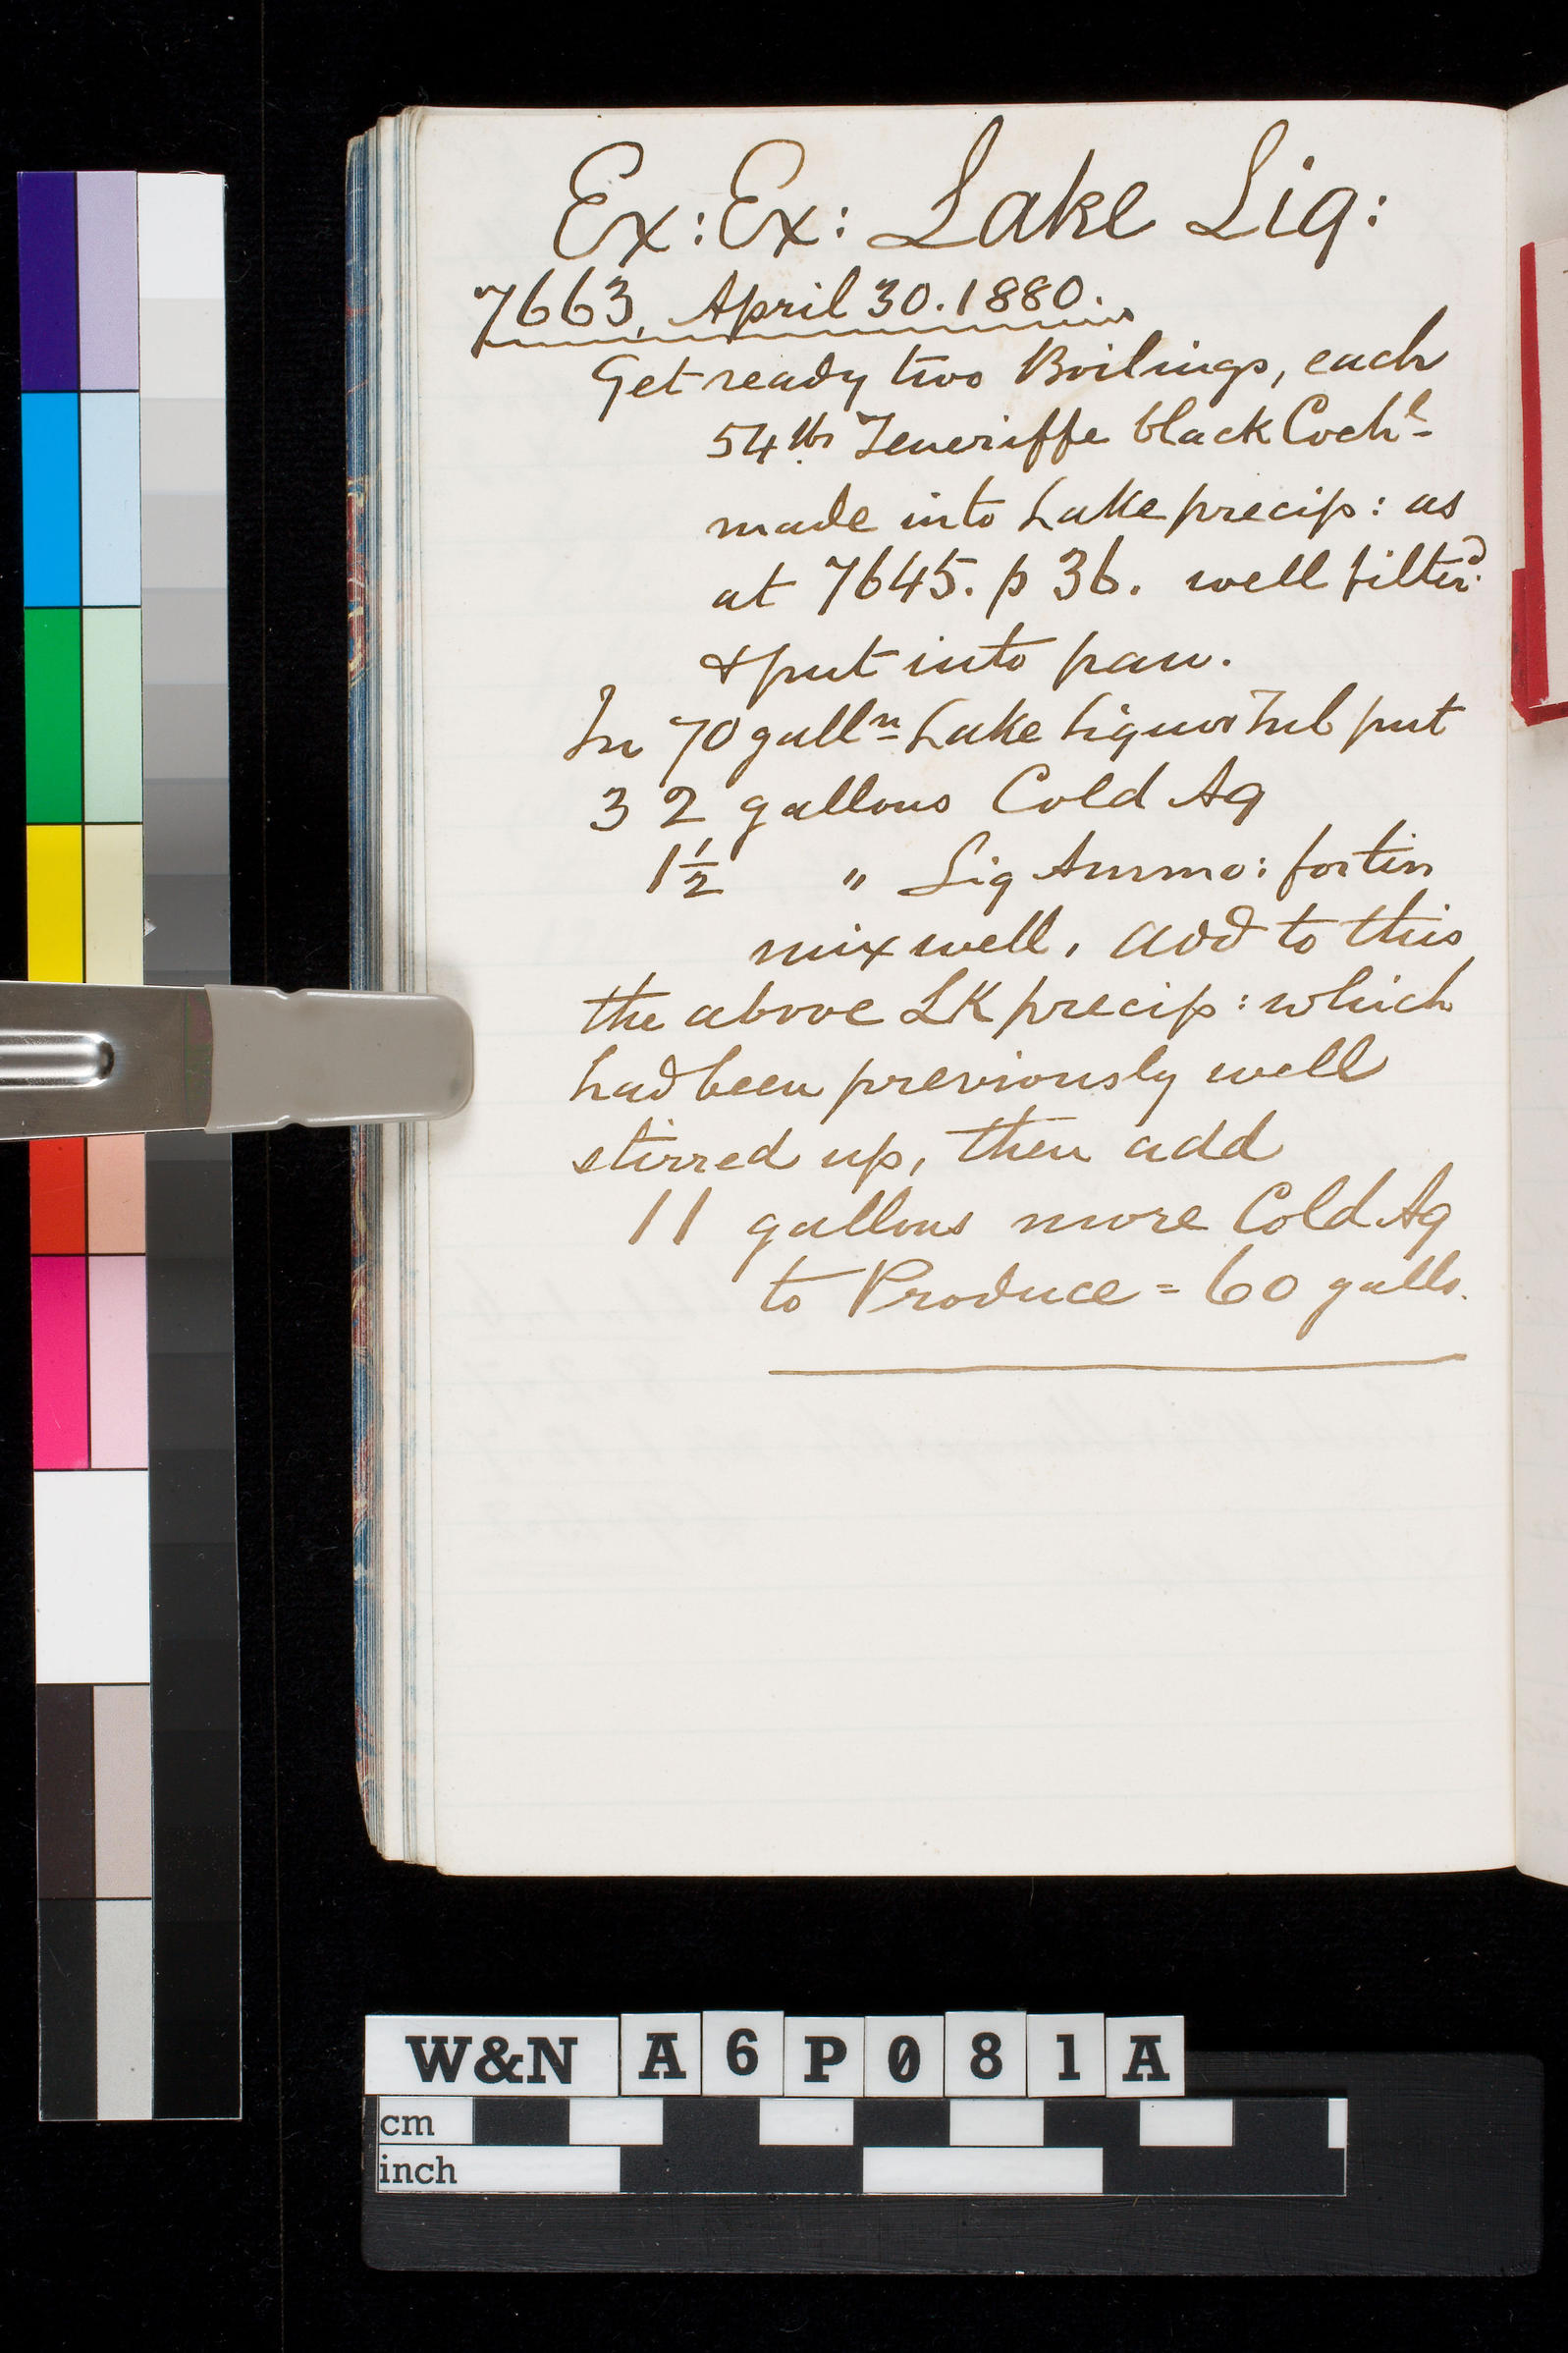 Ex: Ex: Lake Liq:
7663, April 30. 1880.
Get ready two Boilings, each
54 lbs Teneriffe black Coch^l
made into Lake precip: as
at 7645. p 36. well filter^d
& put into pan.
In 70 gall^n Lake liquor Tub put
32 gallons Cold Aq
1½ " Liq Ammo: fortis
mix well, add to this
the above LK precip: which
had been previously well
stirred up, then add
11 gallons more Cold Aq
to Produce = 60 galls.
W&N A6P081A
cm
inch